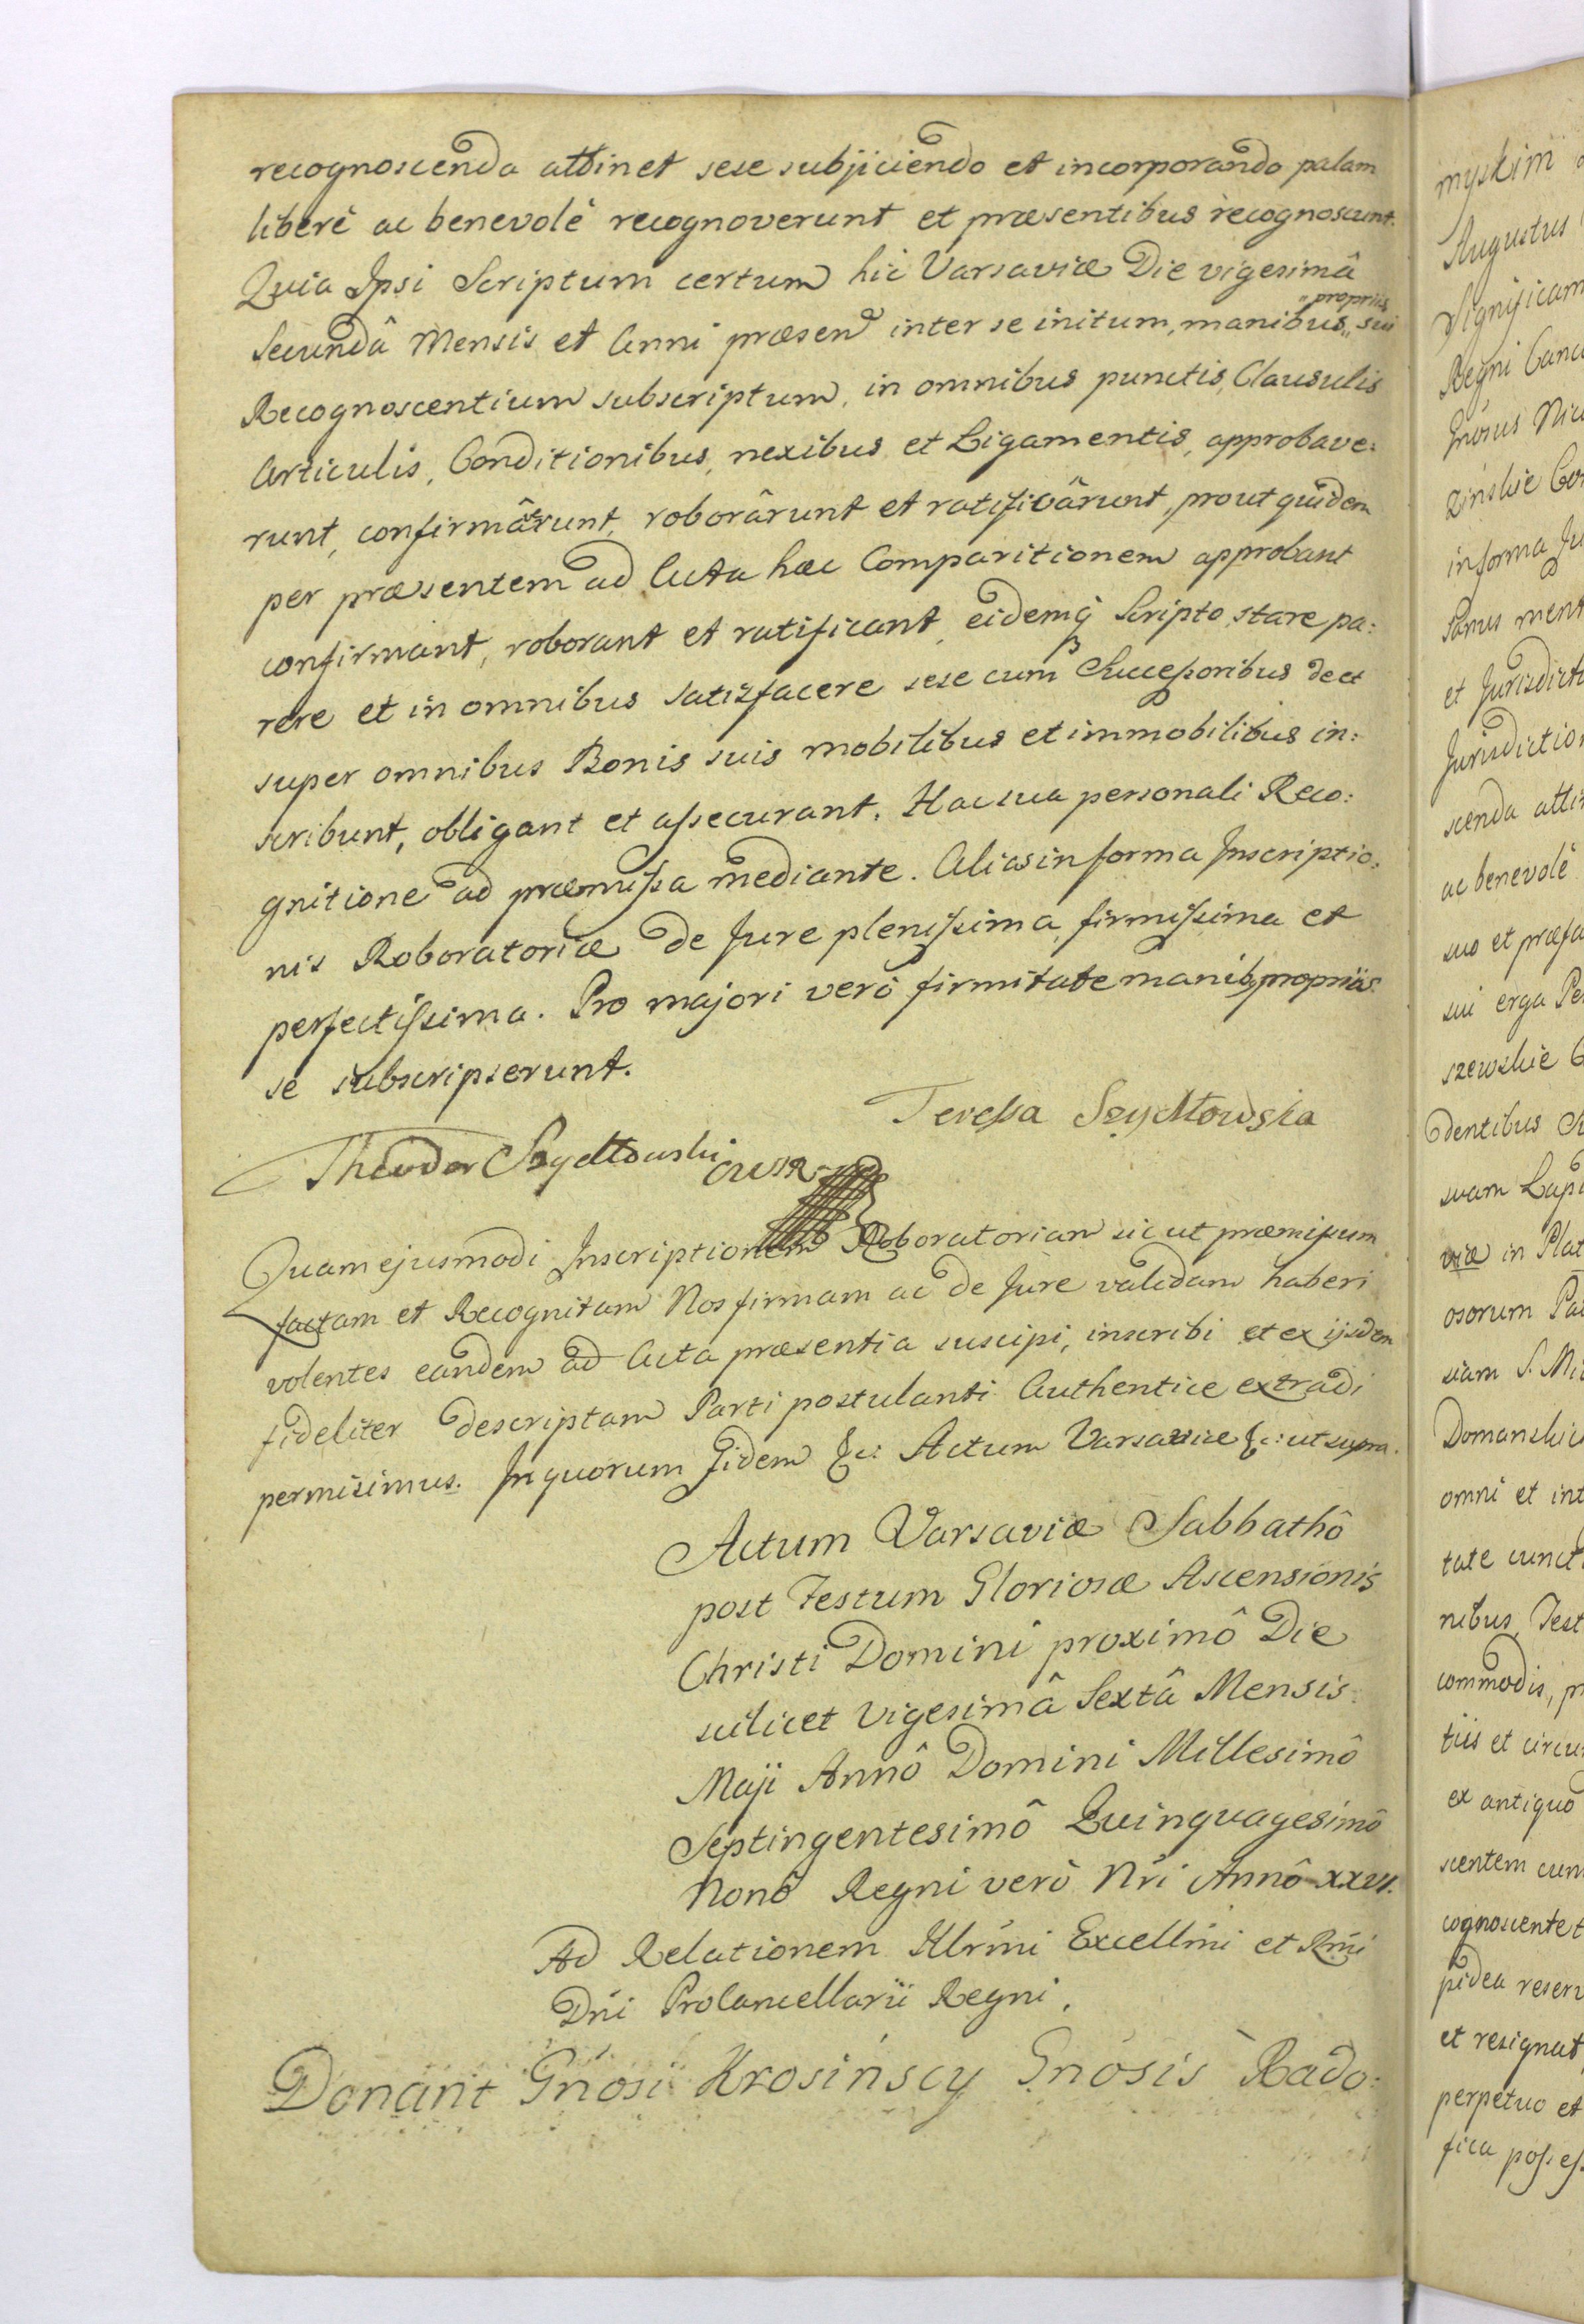 recognoscenda attinet sese subjiciendo et incorporando palam
liberè ac benevolè recognoverunt et præsentibus recognoscunt.
Quia Ipsi Scriptum certum hic Varsaviæ Die vigesimâ
Secundâ Mensis et Anni præsen inter se initum, manibus „propriis„ sui
Recognoscentium subscriptum, in omnibus punctis, Clausulis
Articulis, Conditionibus, nexibus et Ligamentis, approbave:
runt, confirmârunt, roborârunt et ratificârunt, prout quidem
per præsentem ad Acta hæc Comparitionem approbant
confirmant, roborant et ratificant, eidemq̃ Scripto stare pa:
rere et in omnibus satisfacere sese cum Successoribus de et
super omnibus Bonis suis mobilibus et immobilibus in:
scribunt, obligant et assecurant. Hac sua personali Reco:
gnitione ad præmissa mediante. Alias in forma Inscriptio:
nis Roboratoriæ de Jure plenissima, firmissima et
perfectissima. Pro majori verò firmitate manibq propriis
se subscripserunt.
Teressa Szydłowska
Theodor Szydłowski
Quam ejusmodi Inscriptionem Roboratoriam sic ut præmissum
factam et Recognitam Nos firmam ac de Jure validam haberi
volentes eandem ad Acta præsentia suscipi, inscribi et ex ijsdem
fideliter descriptam Parti postulanti Authentice extradi
permisimus. In quorum fidem &c: Actum Varsaviæ &c: ut supra.
Actum Varsaviæ Sabbathô
post Festum Gloriosæ Ascensionis
Christi Domini proximô Die
scilicet Vigesimâ Sextâ Mensis
Maji Annô Domini Millesimô
Septingentesimô Quinquagesimô
Nonô Regni verò Nri Annô XXVI.
Ad Relationem Illrmi Excellmi et Rmi
Dni ProCancellarii Regni.
Donant Gnosi Krosińscy Gnosis Rado:
myskim
Augustus
Significam
Regni Canc
Gnosus Nic
zinskie Con
in forma Ju
Sanus ment
et Jurisdicti
Jurisdiction
scenda atti
ac benevolè
suo et præfa
sui erga Pe
szewskie
dentibus
suam Lapi
viæ in Plat
osorum Pa
siam S. Mi
Domanskie
omni et int
tate cunct
nibus, Test
commodis, p
tiis et circu
ex antiquo
scentem cum
cognoscente t
pidea reserv
et resignat
perpetuo et
fica possess